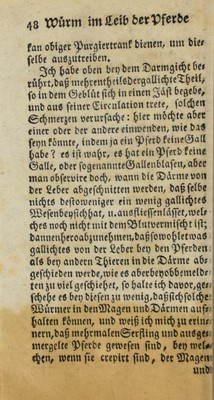 48 Würm im Leib der Pferde
kan obiger Purgiertrank dienen, um die-
selbe auszutreiben.
Ich habe oben bey dem Darmgicht be-
rührt, daß mehrentheils der gallichte Theil,
so in dem Geblüt sich in einen Jäst begebe,
und aus seiner Circulation trete, solchen
Schmerzen verursache: hier möchte aber
einer oder der andere einwenden, wie das
seyn könnte, indem ja ein Pferd keine Gall
habe? es ist wahr, es hat ein Pferd keine
Galle, oder sogenannte Gallenblasen, aber
man observire doch, wann die Därme von
der Leber abgeschnitten werden, daß selbe
nichts destoweniger ein wenig gallichtes
Wesen bey sich hat, u. ausfliessen lässet, wel-
ches noch nicht mit dem Blut vermischt ist;
dannenhero abzunehmen, daß sowohl etwas
gallichtes von der Leber bey den Pferden
als bey andern Thieren in die Därme ab-
geschieden werde, wie es aber bey obbemelde-
ten zu viel geschiehet, so halte ich davor, ge-
schehe es bey diesen zu wenig, daß sich solche
Würmer in den Magen und Därmen auf-
halten können, und weiß ich mich zu erin-
nern, daß mehrmalen Serfling und ausge-
mergelte Pferde gewesen sind, bey wel-
chen, wenn sie crepirt sind, der Magen
und